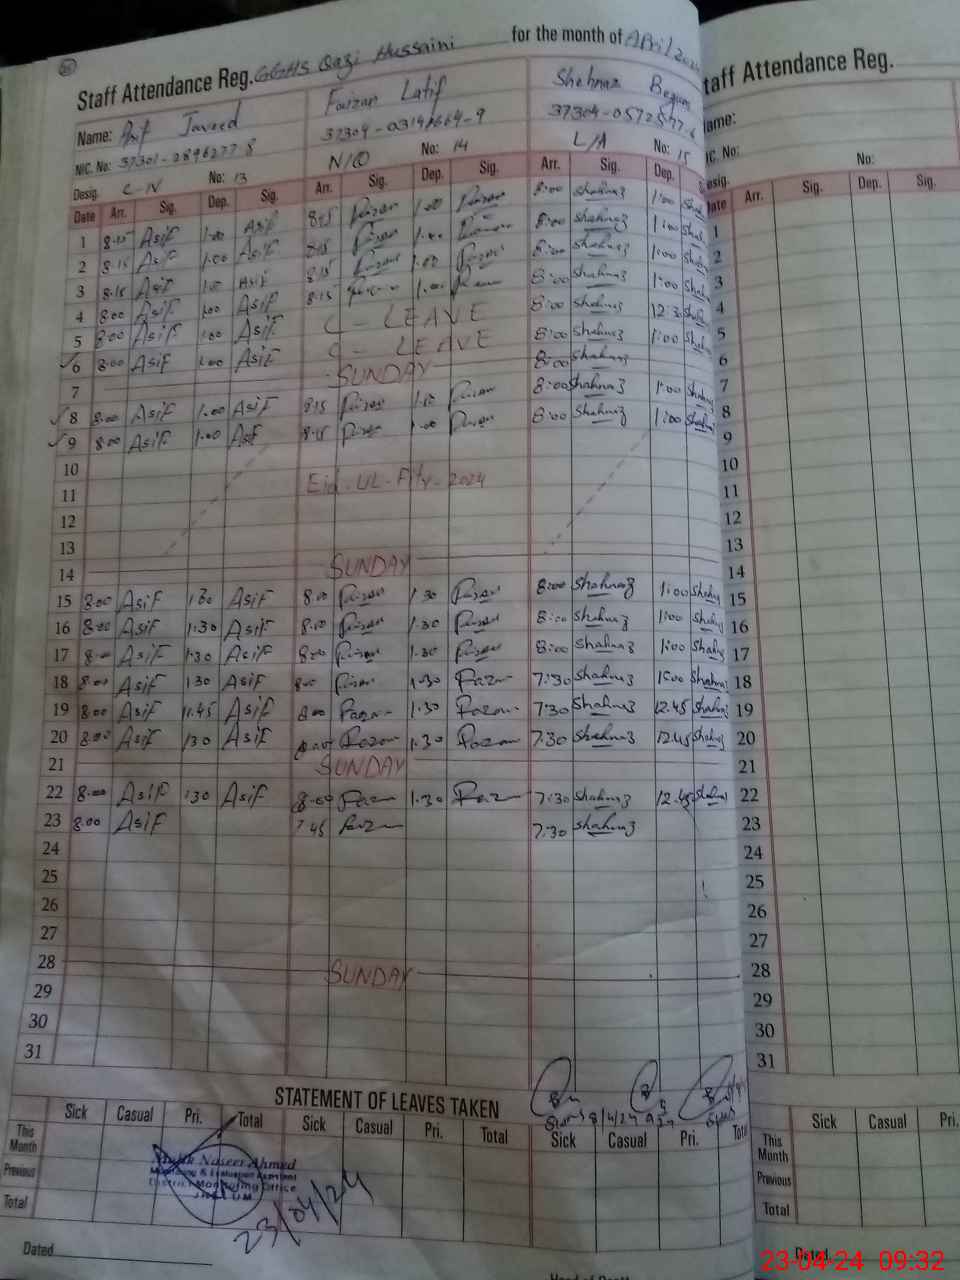 Staff Attendance Reg. GGHS Qazi Hussaini for the month of April
Staff Attendance Reg.
Name: Asif Javeed Faizan Latif Shehnaz Begum
NIC. No: 37301-2896277-8 37304-0572597-6
Desig. C-IV No: 13 N/Q No: 14 L/A No: 15
No:
Date Arr. Sig. Dep. Sig. Arr. Sig. Dep. Sig. Arr. Sig. Dep.
Arr. Sig. Dep. Sig.
1 8:15 Asif 1:00 Asif 8:15 Faizan 1:00 Faizan 8:00 Shahnaz 1:00 Shah
2 8:15 Asif 1:00 Asif 8:15 Faizan 1:00 8:00 Shahnaz 1:00 Shah
3 8:15 Asif Asif 8:15 Faizan 1:00 8:00 Shahnaz 1:00 Shah
4 8:00 Asif 1:00 Asif 8:15 1:00 8:00 Shahnaz 1:00 Shah
5 8:00 Asif 1:00 Asif C - LEAVE 8:00 Shahnaz 12:30 Shah
6 8:00 Asif 1:00 Asif C - LEAVE 8:00 Shahnaz 1:00 Shah
7 SUNDAY
8 8:00 Asif 1.00 Asif 8:15 Faizan 1.00 Faizan 8:00 Shahnaz 1:00 Shahnaz
9 8:00 Asif 1.00 Asif 8:15 Faizan 1.00 Faizan 8:00 Shahnaz 1:00 Shahnaz
10
11 Eid-UL-Fitr-2024
12
13
14 SUNDAY
15 8:00 Asif 1:30 Asif 8:00 Faizan 1.30 Faizan 8:00 Shahnaz 1:00 Shahnaz
16 8:00 Asif 1.30 Asif 8:00 Faizan 1.30 Faizan 8:00 Shahnaz 1:00 Shahnaz
17 8:00 Asif 1.30 Asif 8:00 Faizan 1.30 Faizan 8:00 Shahnaz 1:00 Shahnaz
18 8:00 Asif 1:30 Asif 8:00 Faizan 1.30 Fazan 7:30 Shahnaz 1:00 Shahnaz
19 8:00 Asif 11.45 Asif 8:00 Fazan 1.30 Fazan 7:30 Shahnaz 12.45 Shahnaz
20 8:00 Asif 1:30 Asif 8:00 Fazan 1.30 Fazan 7:30 Shahnaz 12.45 Shahnaz
21 SUNDAY
22 8:00 Asif 1:30 Asif 8:00 Fazan 1.30 Fazan 7:30 Shahnaz 12.45 Shahnaz
23 8:00 Asif 7:45 Fazan 7:30 Shahnaz
24
25
26
27
28 SUNDAY
29
30
31
STATEMENT OF LEAVES TAKEN
Sick Casual Pri. Total Sick Casual Pri. Total Sick Casual Pri. Total
Sick Casual Pri.
This Month
Previous
Total
Malik Naseer Ahmed
Monitoring & Evaluation Assistant
District Monitoring Office
JHELUM
23/04/24
This Month
Previous
Total
Dated
Dated
23-04-24 09:32